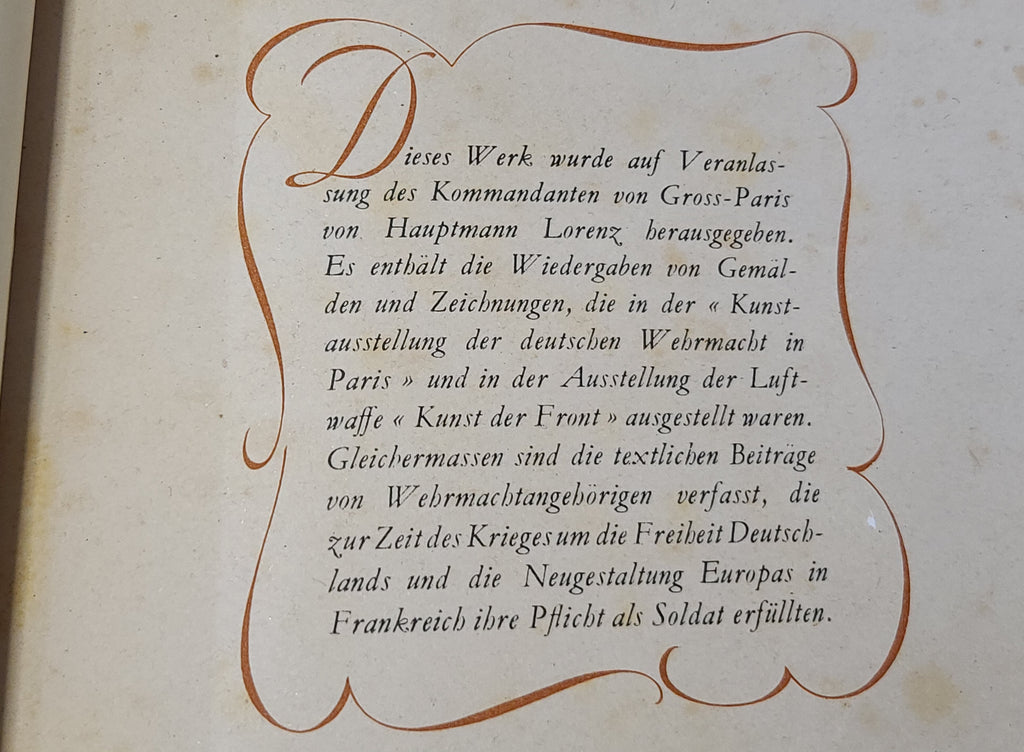 Dieses Werk wurde auf Veranlas-
sung des Kommandanten von Gross-Paris
von Hauptmann Lorenz herausgegeben.
Es enthält die Wiedergaben von Gemäl-
den und Zeichnungen, die in der « Kunst-
ausstellung der deutschen Wehrmacht in
Paris » und in der Ausstellung der Luft-
waffe « Kunst der Front » ausgestellt waren.
Gleichermassen sind die textlichen Beiträge
von Wehrmachtangehörigen verfasst, die
zur Zeit des Krieges um die Freiheit Deutsch-
lands und die Neugestaltung Europas in
Frankreich ihre Pflicht als Soldat erfüllten.